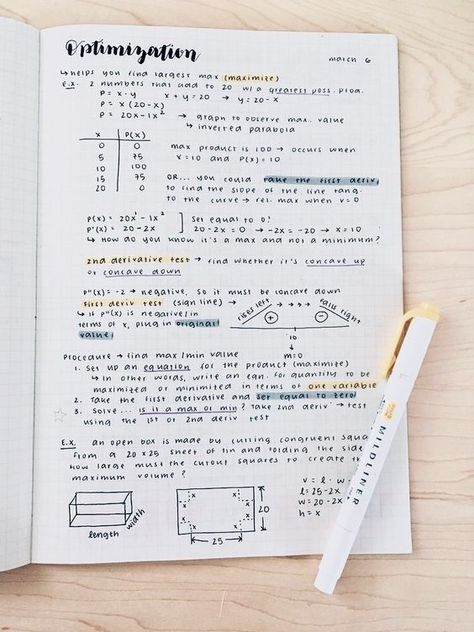 Optimization
march 6
↳ helps you find largest max (maximize)
E.X. 2 numbers that add to 20 w/ a greatest poss. prod.
P = x · y    x + y = 20 → y = 20 - x
P = x (20 - x)
P = 20x - 1x² → graph to observe max. value
↳ inverted parabola
x    P(x)
0    0
5    75
10    100
15    75
20    0
max product is 100 → occurs when
x = 10 and P(x) = 10
OR... you could take the first deriv.
to find the slope of the line tang.
to the curve → rel. max when x = 0
P(x) = 20x¹ - 1x² ] set equal to 0!
P'(x) = 20 - 2x    20 - 2x = 0 → -2x = -20 → x = 10
↳ How do you know it's a max and not a minimum?
2nd derivative test → find whether it's concave up
or concave down
P"(x) = -2 → negative, so it must be concave down
first deriv test (sign line) →
↳ if P"(x) is negative/in
terms of x, plug in original
value
rises left → → → → falls right
+ -
10
m=0
Procedure → find max/min value
1. Set up an equation for the product (maximize)
↳ In other words, write an eqn. for quantity to be
maximized or minimized in terms of one variable
2. Take the first derivative and set equal to zero!
3. Solve... is it a max or min? Take 2nd deriv → test
using the 1st or 2nd deriv test
E.X. an open box is made by cutting congruent squa
from a 20 x 25 sheet of tin and folding the side
how large must the cutout squares to create th
maximum volume?
length
width
x x
x x
x x
x x
20
25
v = l · w
l = 25 - 2x
w = 20 - 2x
h = x
MILDLINER